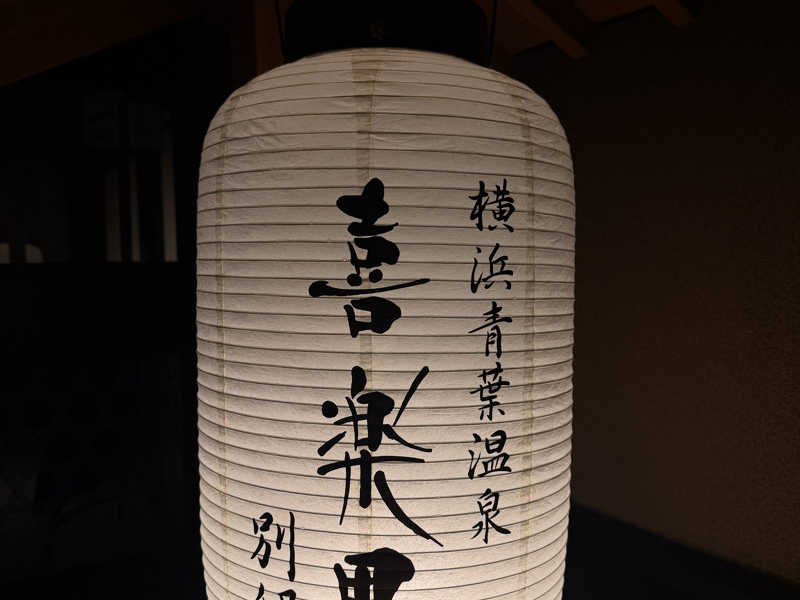 横浜青葉温泉
喜楽里
別